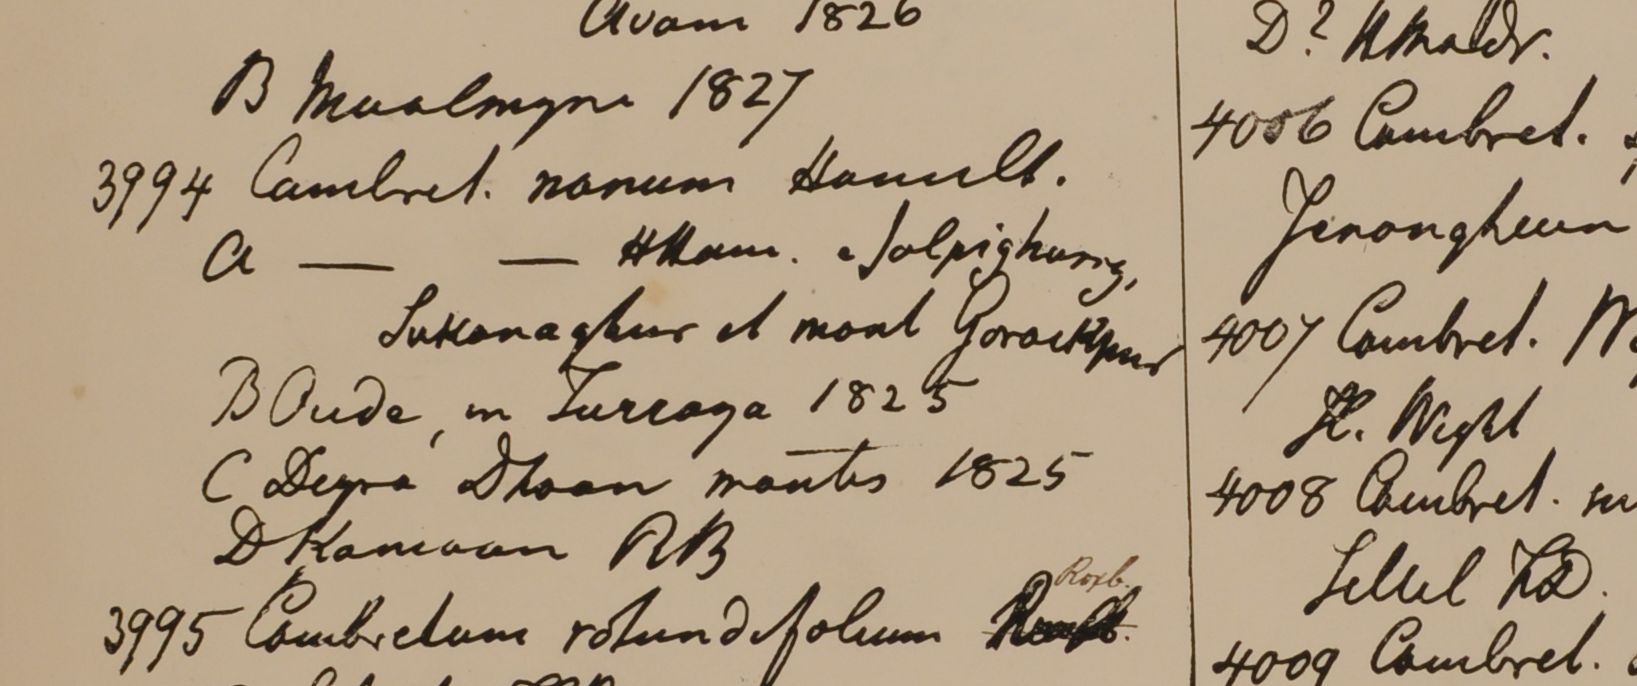 Avam 1826
B Moalmyne 1827
3994 Combret. nanum Hamilt.
a — — HHam. e Jolpighurry,
Sukanaghur et mont Gorackpur
B Oude, in Turraya 1825
C Deyra Dhoon montis 1825
D Kamaon RB
3995 Combretum rotundifolium Roxb.
D? 
4006 Combret.
4007 Combret.
H. Wight
4008 Combret.
Sillet FD.
4009 Combret.